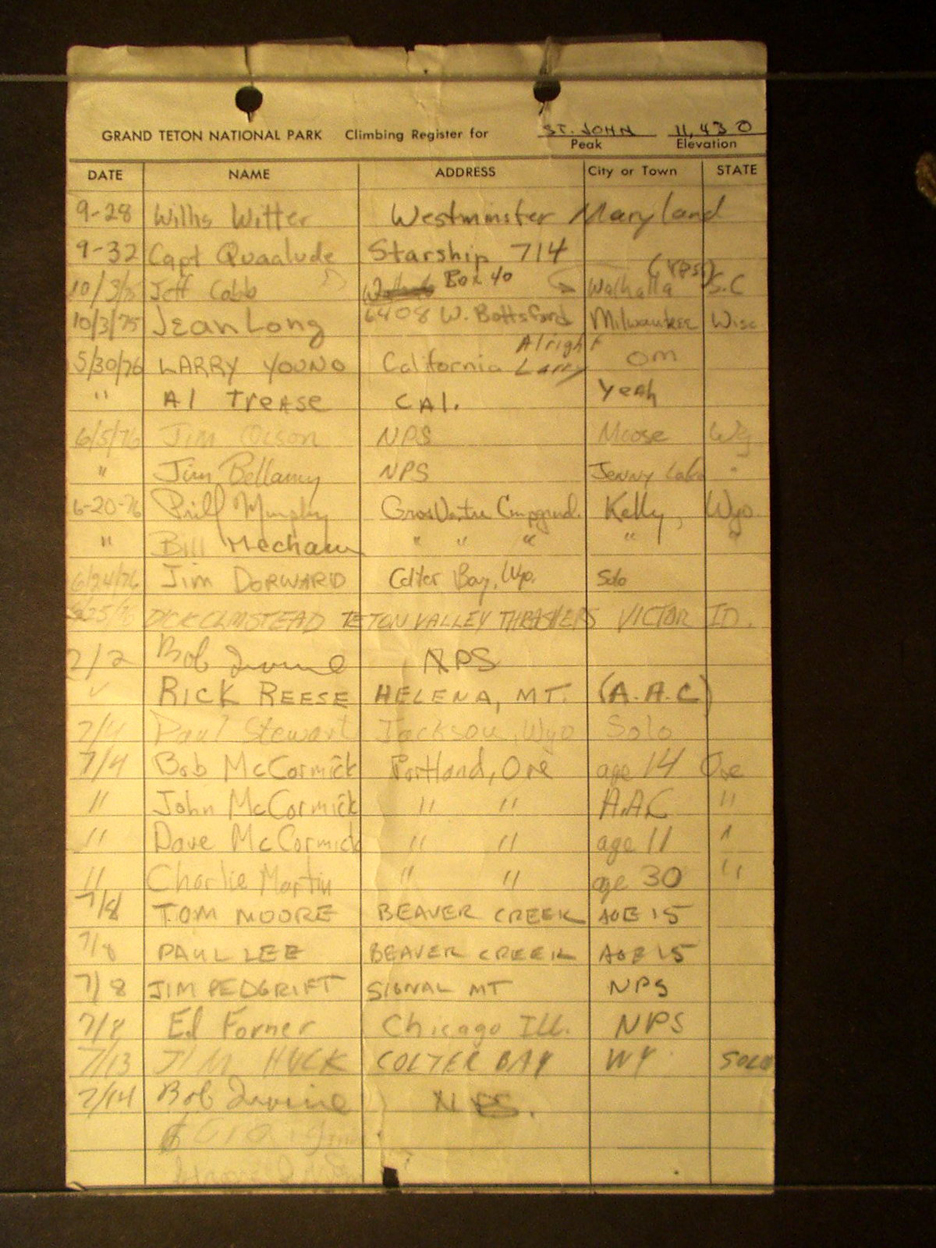 ST. JOHN 11,430
GRAND TETON NATIONAL PARK Climbing Register for Peak Elevation
DATE NAME ADDRESS City or Town STATE
9-28 Willis Witter Westminster Maryland
9-32 Capt Quaalude Starship 714
10/3/75 Jeff Cobb Box 40 Walhalla S.C
10/3/75 Jean Long 6408 W. Bottsford Milwaukee Wisc
5/30/76 LARRY YOUNG California Alright Larry om
" Al Trease CAL. Yeah
6/5/76 Jim Olson NPS Moose Wy
" Jim Bellamy NPS Jenny Lake "
6-20-76 Murphy Gros Ventre Campground. Kelly, Wyo.
" Bill Mecham " " " " "
6/24/76 Jim DORWARD Colter Bay, Wyo. Solo
DICK OLMSTEAD TETON VALLEY THRASHERS VICTOR ID.
7/2 Bob Irvine NPS
RICK REESE HELENA, MT. (A.A.C)
7/4 Paul Stewart Jackson, Wyo Solo
7/4 Bob McCormick Portland, Ore age 14 Ore
" John McCormick " " A.A.C "
" Dave McCormick " " age 11 "
" Charlie Martin " " age 30 "
7/8 TOM MOORE BEAVER CREEK AGE 15
7/8 PAUL LEE BEAVER CREEK AGE 15
7/8 JIM PEDGRIFT SIGNAL MT NPS
7/8 Ed Forner Chicago Ill. NPS
7/13 JIM HUCK COLTER BAY WY SOLO
7/14 Bob Irvine NPS.